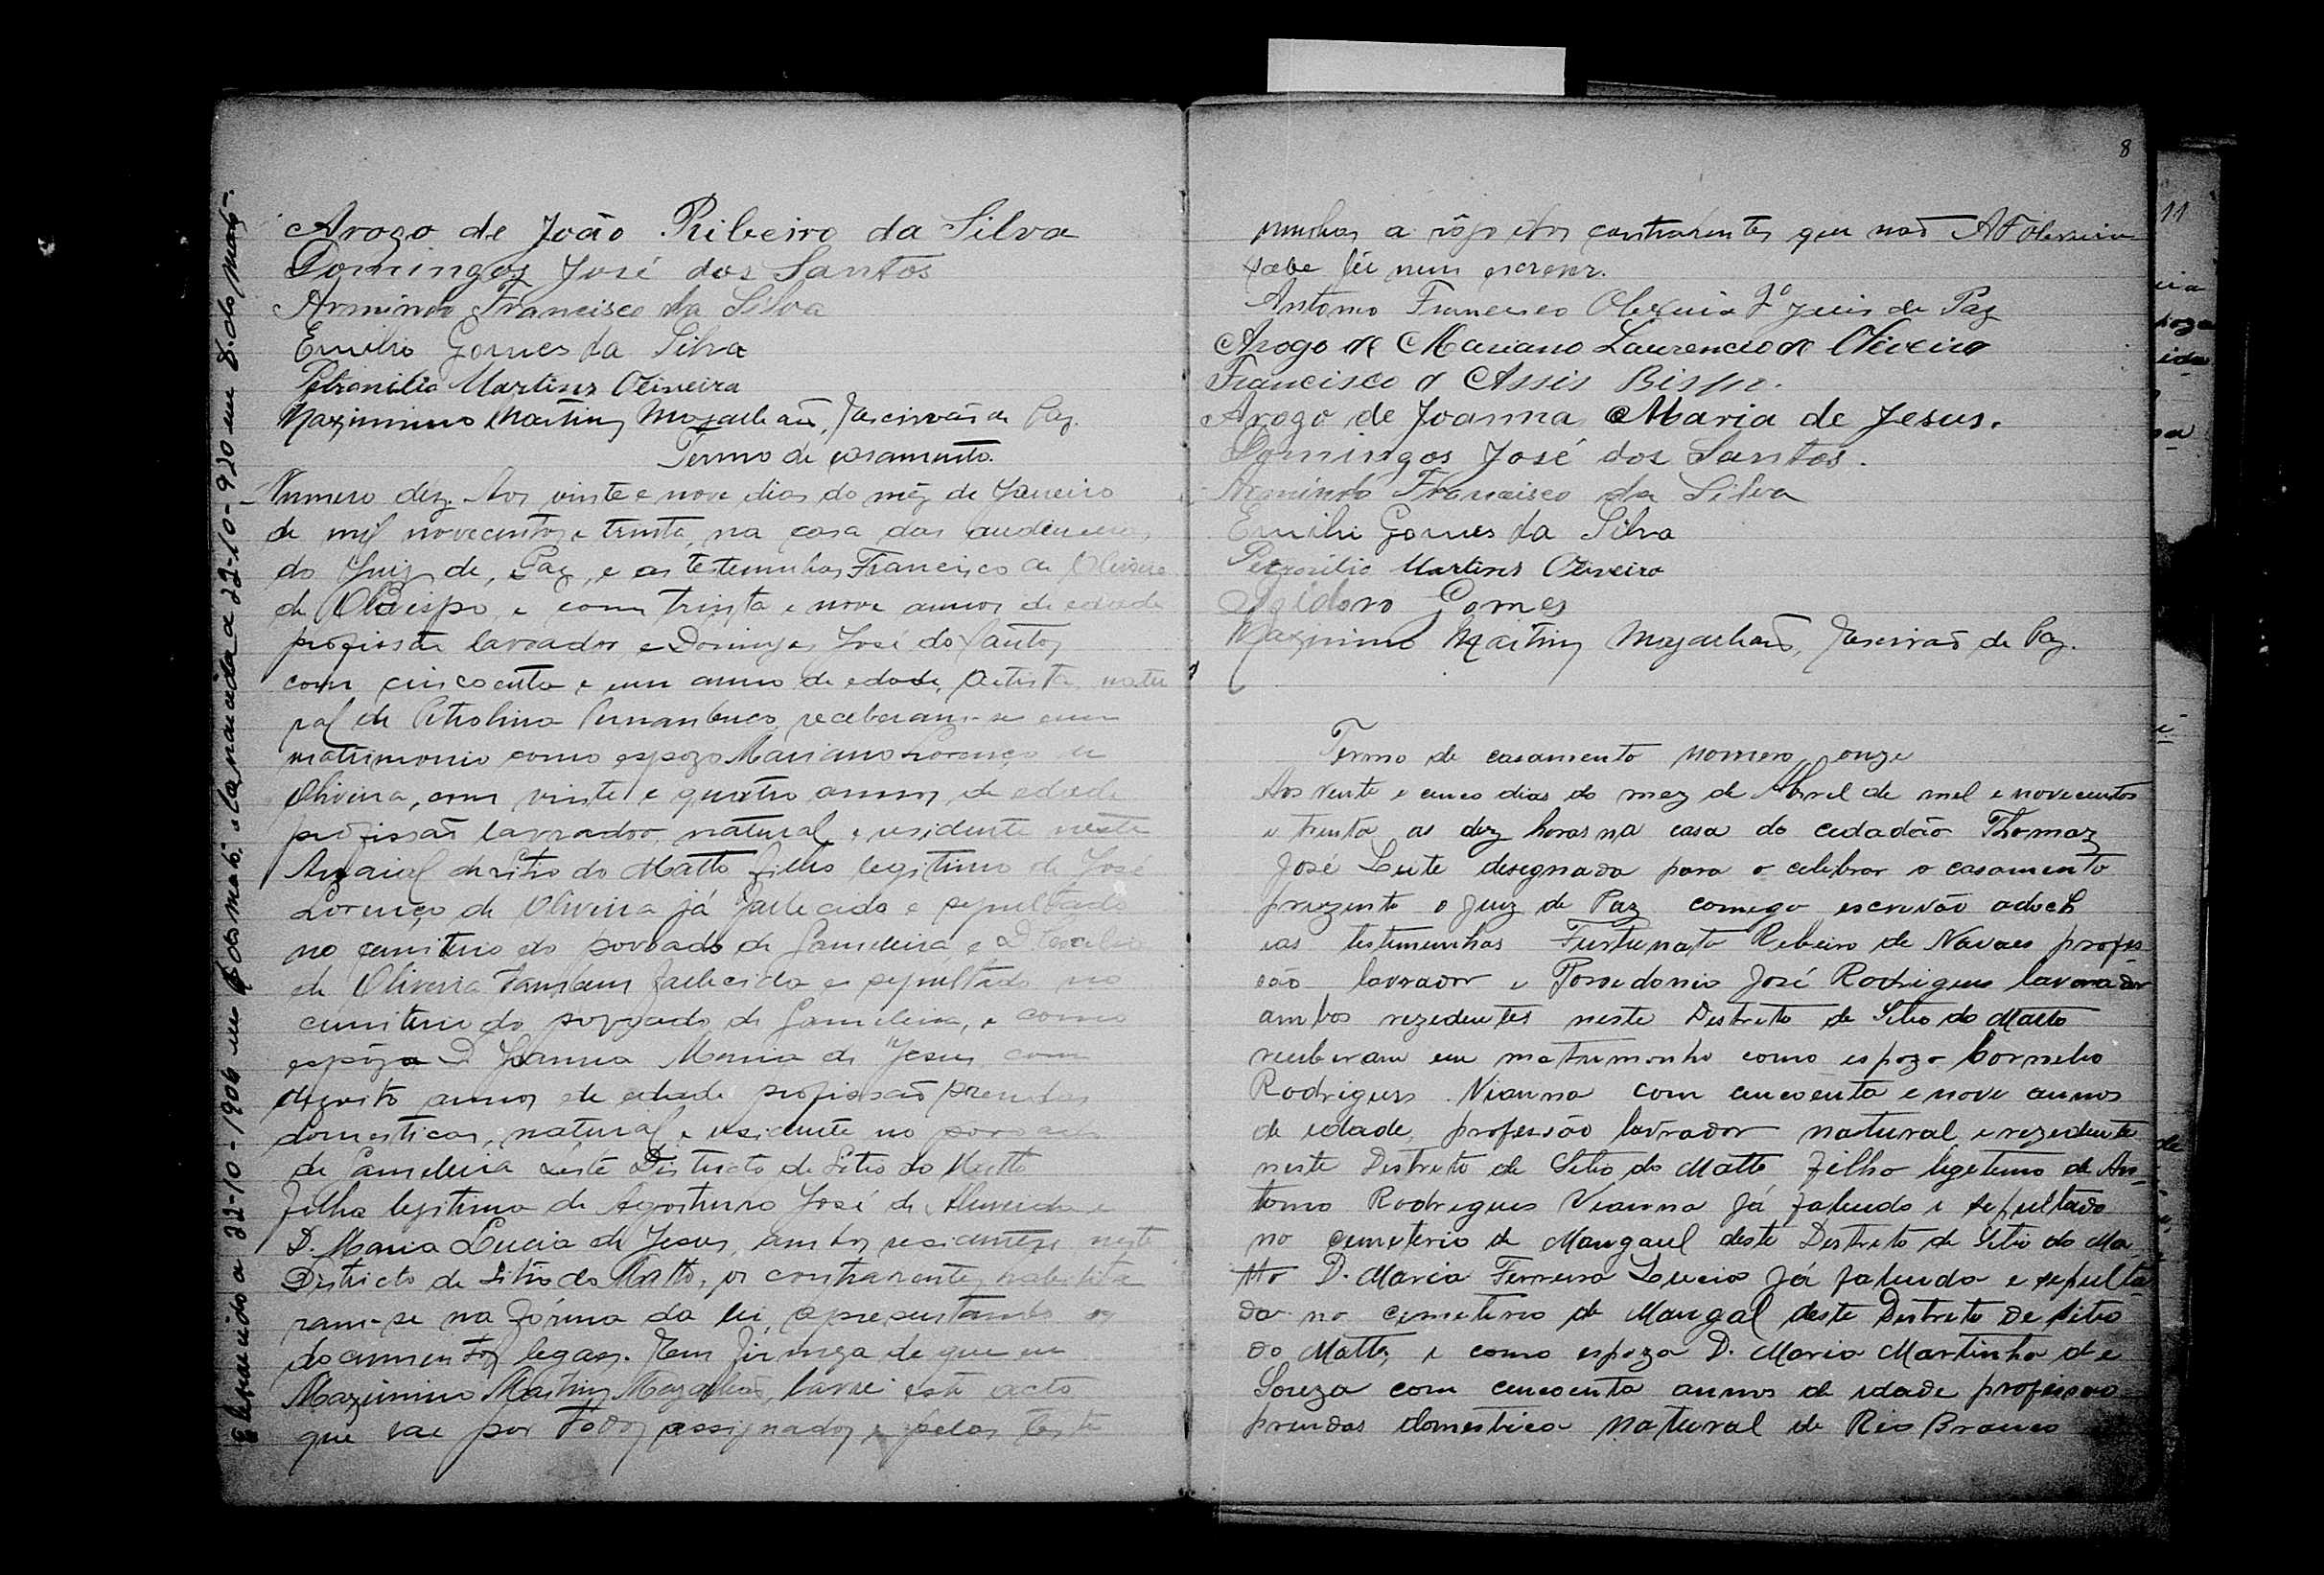 Arogo de João Ribeiro da Silva
Domingos José dos Santos
Armindo Francisco da Silva
Emilio Gomes da Silva
Petronilio Martins Oliveira
Maximino Martins Magalhaẽs, Escrivão de Paz.
Termo de casamento.
Numero dez. Aos vinte e nove dias do mêz de Janeiro
de mil novecentos e trinta, na casa das audiencias
do Juiz de, Paz, e as testemunhas Francisco de
de e com trinta e nove annos de edade
profissão lavrador, e Domingos José do Santos
com cincoenta e um anno de edade, artista, natu
ral de Petrolina Pernambuco, receberam-se em
matrimonio como espozo Mariano Lorenço de
Oliveira, com vinte e quatro annos de edade
profissaõ lavrador, natural e residente neste
Arraial de Sitio do Matto filho legitimo de José
Lorenço de Oliveira já fallecido e sepultado
no cemiterio do povoado de Gamelleira, e D.
de Oliveira tambem fallecida e sepultada no
cemiterio do povoado de Gamelleira, e como
espóza D. Joanna Maria de Jesus com
dezoito annos de edade profissaõ prendas
domesticas, natural e residente no povoado
de Gamelleira deste Districto de Sitio do Matto
filha legitima de Agostinho José de Almeida e
D. Maria Lucia de Jesus, ambos residentes neste
Districto de Sitio do Matto, os contrahentes habilita
ram-se na fórma da lei, apresentando os
documentos legaes. Em firmeza de que eu
Maximino Martins Magalhaẽs, lavrei este acto
que vae por todos assignados, e pelas teste
Extrahida a 22-10-920 em 8. do mato.
8
munhas a rôgo dos contrahentes que naõ AFOliveira
sabe lêr nem escrever.
Antonio Francisco Oliveira 2º Juis de Paz
Arogo de Mariano Laurencio de Oliveira
Francisco d Assis Bispo.
Arogo de Joanna Maria de Jesus.
Domingos José dos Santos.
Armindo Francisco da Silva
Emilio Gomes da Silva
Petronilio Martins Oliveira
Izidoro Gomes
Maximino Martins Magalhaẽs, Escrivaõ de Paz.
Termo de casamento nomero onze
Aos vente e cinco dias do mez de Abril de mil e novecentos
e trinta as dez horas na casa do cedadão Thomaz
José Leite designada para o celebrar o casamento
prezente o Juiz de Paz comego escrivão
eas testimunhas Furtunato Rebeiro de Navaes profes
são lavrador e Possedonio José Rodrigues lavorador
ambos rezedentes neste Destreto de Setio do Matto
receberam em matrimonho como espozo Cornelio
Rodrigues Vianna com cincoenta e nove annos
de edade, profissão lavrador natural e rezedente
neste Destreto de Setio do Matto filho legetimo de An-
tonio Rodrigues Vianna Já falecido e sepultado
no cemeterio de Mangaul deste Destreto de Setio do Ma
tto D. Maria Ferreira Lucia Já falecida e sepulta
da no cemeterio de Mangal deste Destreto de Sitio
do Matto, e como espoza D. Maria Martinha de
Souza com cincoenta annos de edade profissão
prendas domestica natural de Rio Branco
11